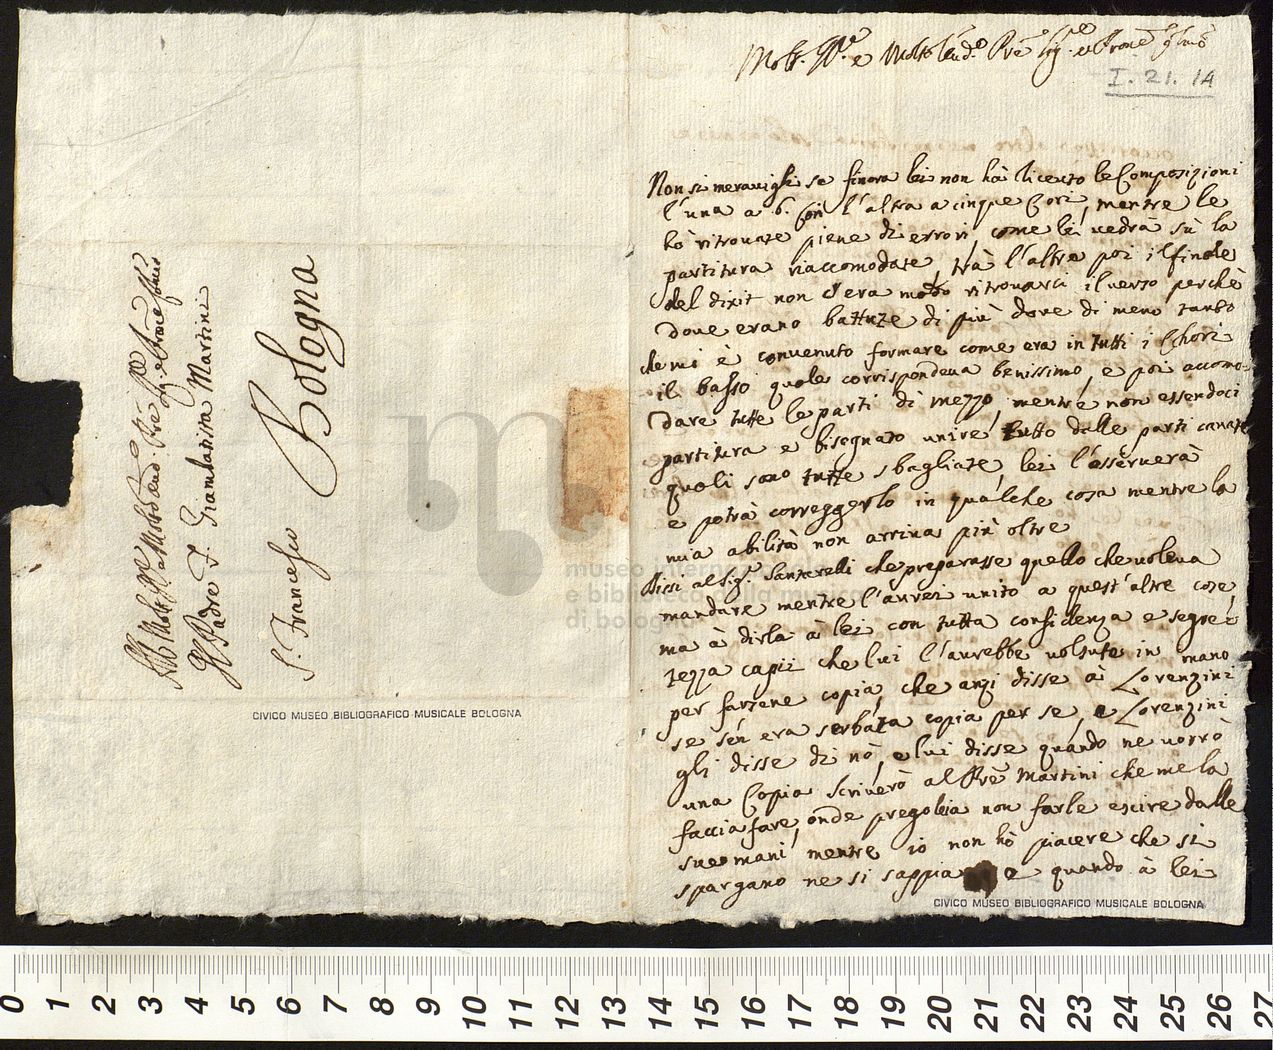 Molt. Ill.e e Molto Rend.o Pre Sig.e e Prone
I. 21. 14
Non si meravigli se finora lei non hà riceuto le Composizioni
l'una a 6. Cori l'altra a cinque Cori, mentre le
hò ritrovate piene di errori, come lei vedrà sù la
partitura riaccomodate, trà l'altre poi il finale
del dixit non v'era modo ritrovarci il verso perchè
dove erano battute di più dove di meno tanto
che mi è convenuto formare come era in tutti i Chori
il basso quale corrispondeva benissimo, e poi accomo-
dare tutte le parti di mezzo, mentre non essendoci
partitura e bisegnato unire tutto dalle parti cavate
quali sono tutte sbagliate, lei l'osserverà
e potrà correggerlo in qualche cosa mentre la
mia abilità non arriva più oltre
Dissi al Sig.r Santarelli che preparasse quello che voleva
mandare mentre l'avrei unito a quest'altre cose,
mà à dirla à lei con tutta confidenza e segre-
tezza capij che lui l'avrebbe volsute in mano
per farsene copia, che anzi disse à Lorenzini
se s'en'era serbata copia per se, e Lorenzini
gli disse di nò, e lui disse quando ne vorrò
una Copia scriverò al Pre Martini che me la
faccia fare, onde pregola a non farle escire dalle
sue mani, mentre io non hò piacere che si
spargano ne si sappia e quando à lei
Al Molt. Ill.e e Molto Rend. Pre Sig.e e Prone
Il Padre F. Giambatista Martini
S. Francesco Bologna
museo internazionale
e biblioteca della musica
di bologna
CIVICO MUSEO BIBLIOGRAFICO MUSICALE BOLOGNA
CIVICO MUSEO BIBLIOGRAFICO MUSICALE BOLOGNA
0 1 2 3 4 5 6 7 8 9 10 11 12 13 14 15 16 17 18 19 20 21 22 23 24 25 26 27